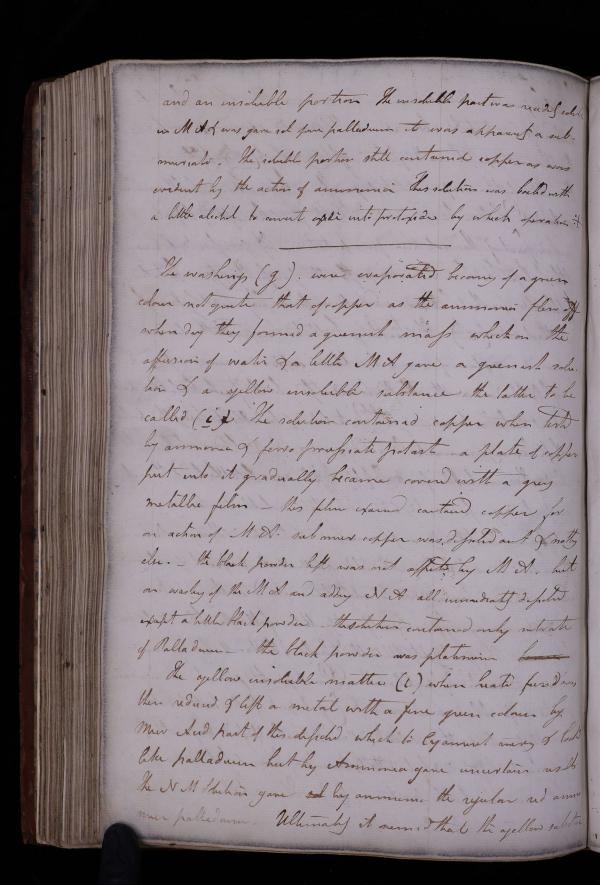 and an insoluble portion The insoluble portion was readily solu
in M A & was gave sol pure palladium it was apparently a sub
muriate. The soluble portion still contained copper as was
evident by the action of ammonia This solution was boiled with
a little alcohol to convert into protoxide by which operation it
The washings (g) were evaporated becoming of a green
colour not quite that of copper as the ammonia flew off
when dry they formed a greenish mass which on the
affusion of water & a little M A gave a greenish solu
tion & a yellow insoluble substance the latter to be
called (i) The solution contained copper when tested
by ammonia & ferro prussiate potash a plate of copper
put into it gradually became covered with a grey
metallic film - this film contained copper for
on action of M A. sub mur copper was dissolved out & nothing
else. - the black powder left was not affected by M A. but
on washing off the M A and adding N A all immediately dissolved
except a little black powder the solution contained only nitrate
of Palladium - the black powder was platinum
The yellow insoluble matter (i) when heated fused was
then reduced & left a metal with a fine green colour by
Mur Acid part of this dissolved which to Cyanuret mercy & looked
like palladium but by Ammonia gave uncertain results
the N M solution gave by ammonia the regular red ammo
mur palladium. Ultimately it seemed that the yellow substance